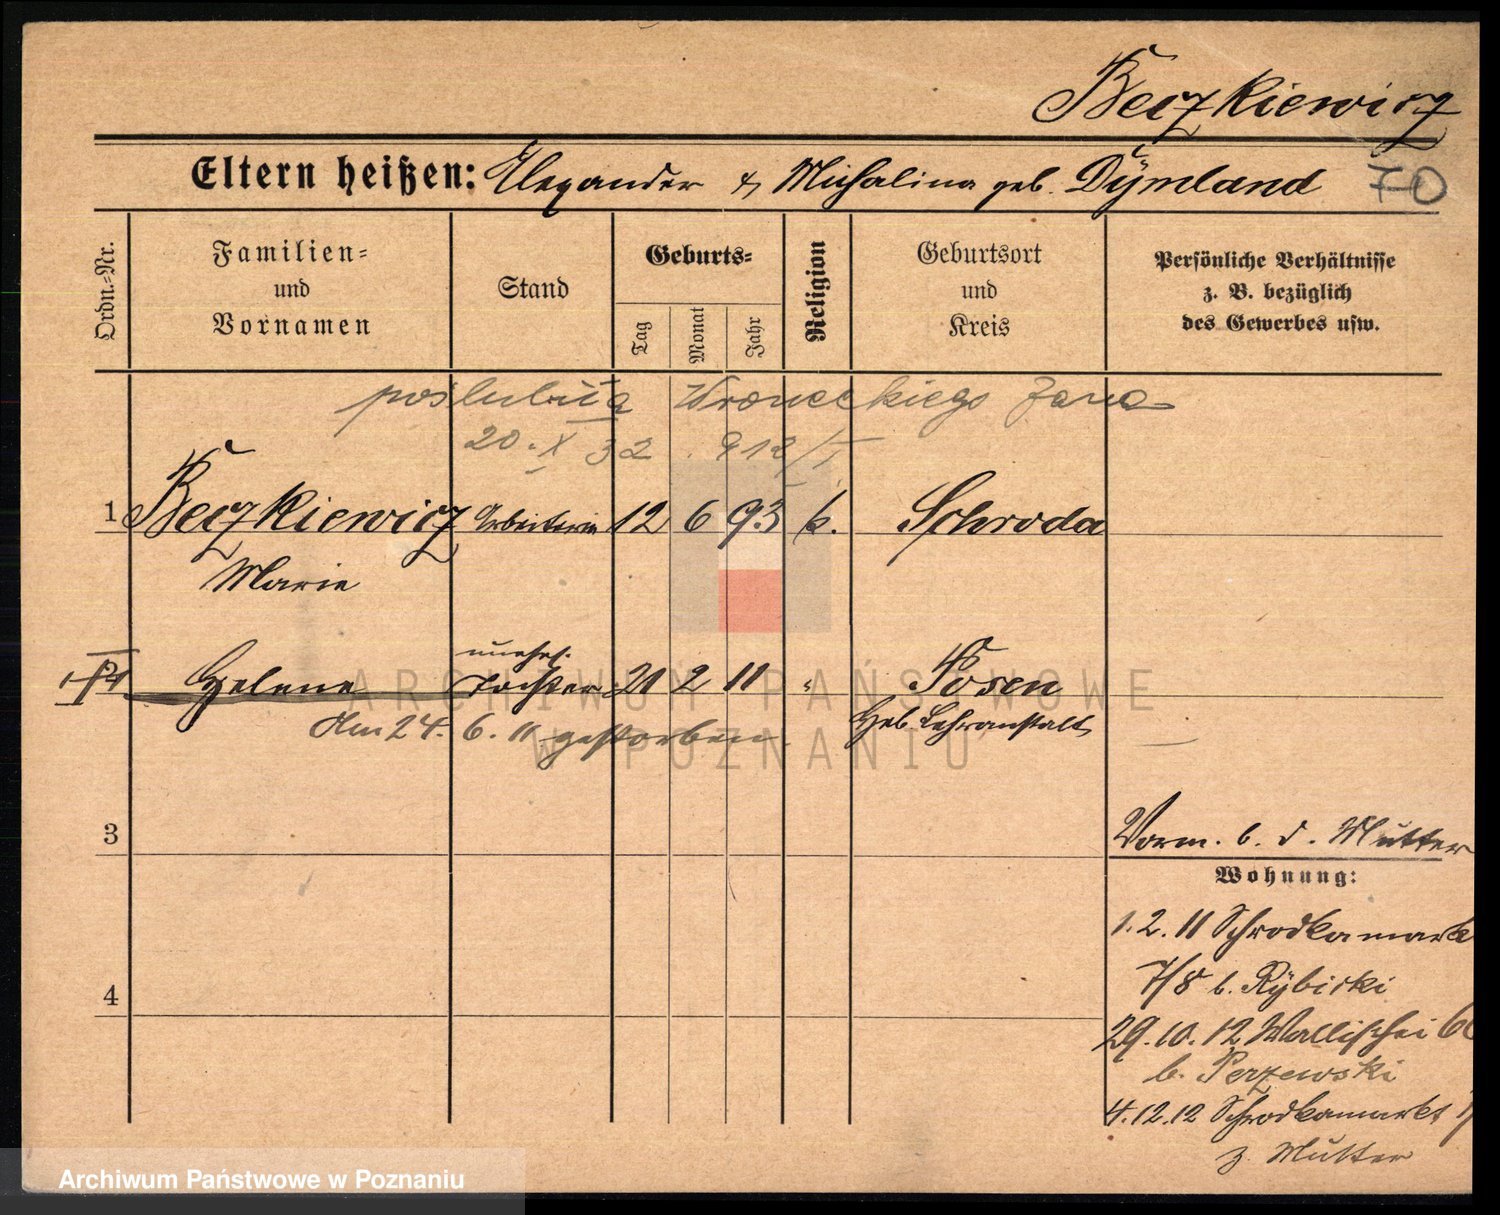 Beczkiewicz
Eltern heißen: Alexander & Michalina geb. Dymland
70
Ordn.=Nr.
Familien=
und
Vornamen
Stand
Geburts=
Tag
Monat
Jahr
Religion
Geburtsort
und
Kreis
Persönliche Verhältnisse
z. B. bezüglich
des Gewerbes usw.
poślubiła Wroneckiego Jana
20. X 32. 912/I
1 Beczkiewicz Arbeiterin 12 6 93 k. Schroda
Marie
unehel.
2 Helene Tochter 21 2 11 " Posen
Am 24. 6. 11 gestorben. Heb. Lehranstalt
3
Vorm. b. d. Mutter
Wohnung:
1. 2. 11 Schrodkamarkt
7/8 b. Rybicki
4
29. 10. 12 Wallischei
b. Perzewski
4. 12. 12 Schrodkamarkt
z. Mutter
ARCHIWUM PAŃSTWOWE
W POZNANIU
Archiwum Państwowe w Poznaniu